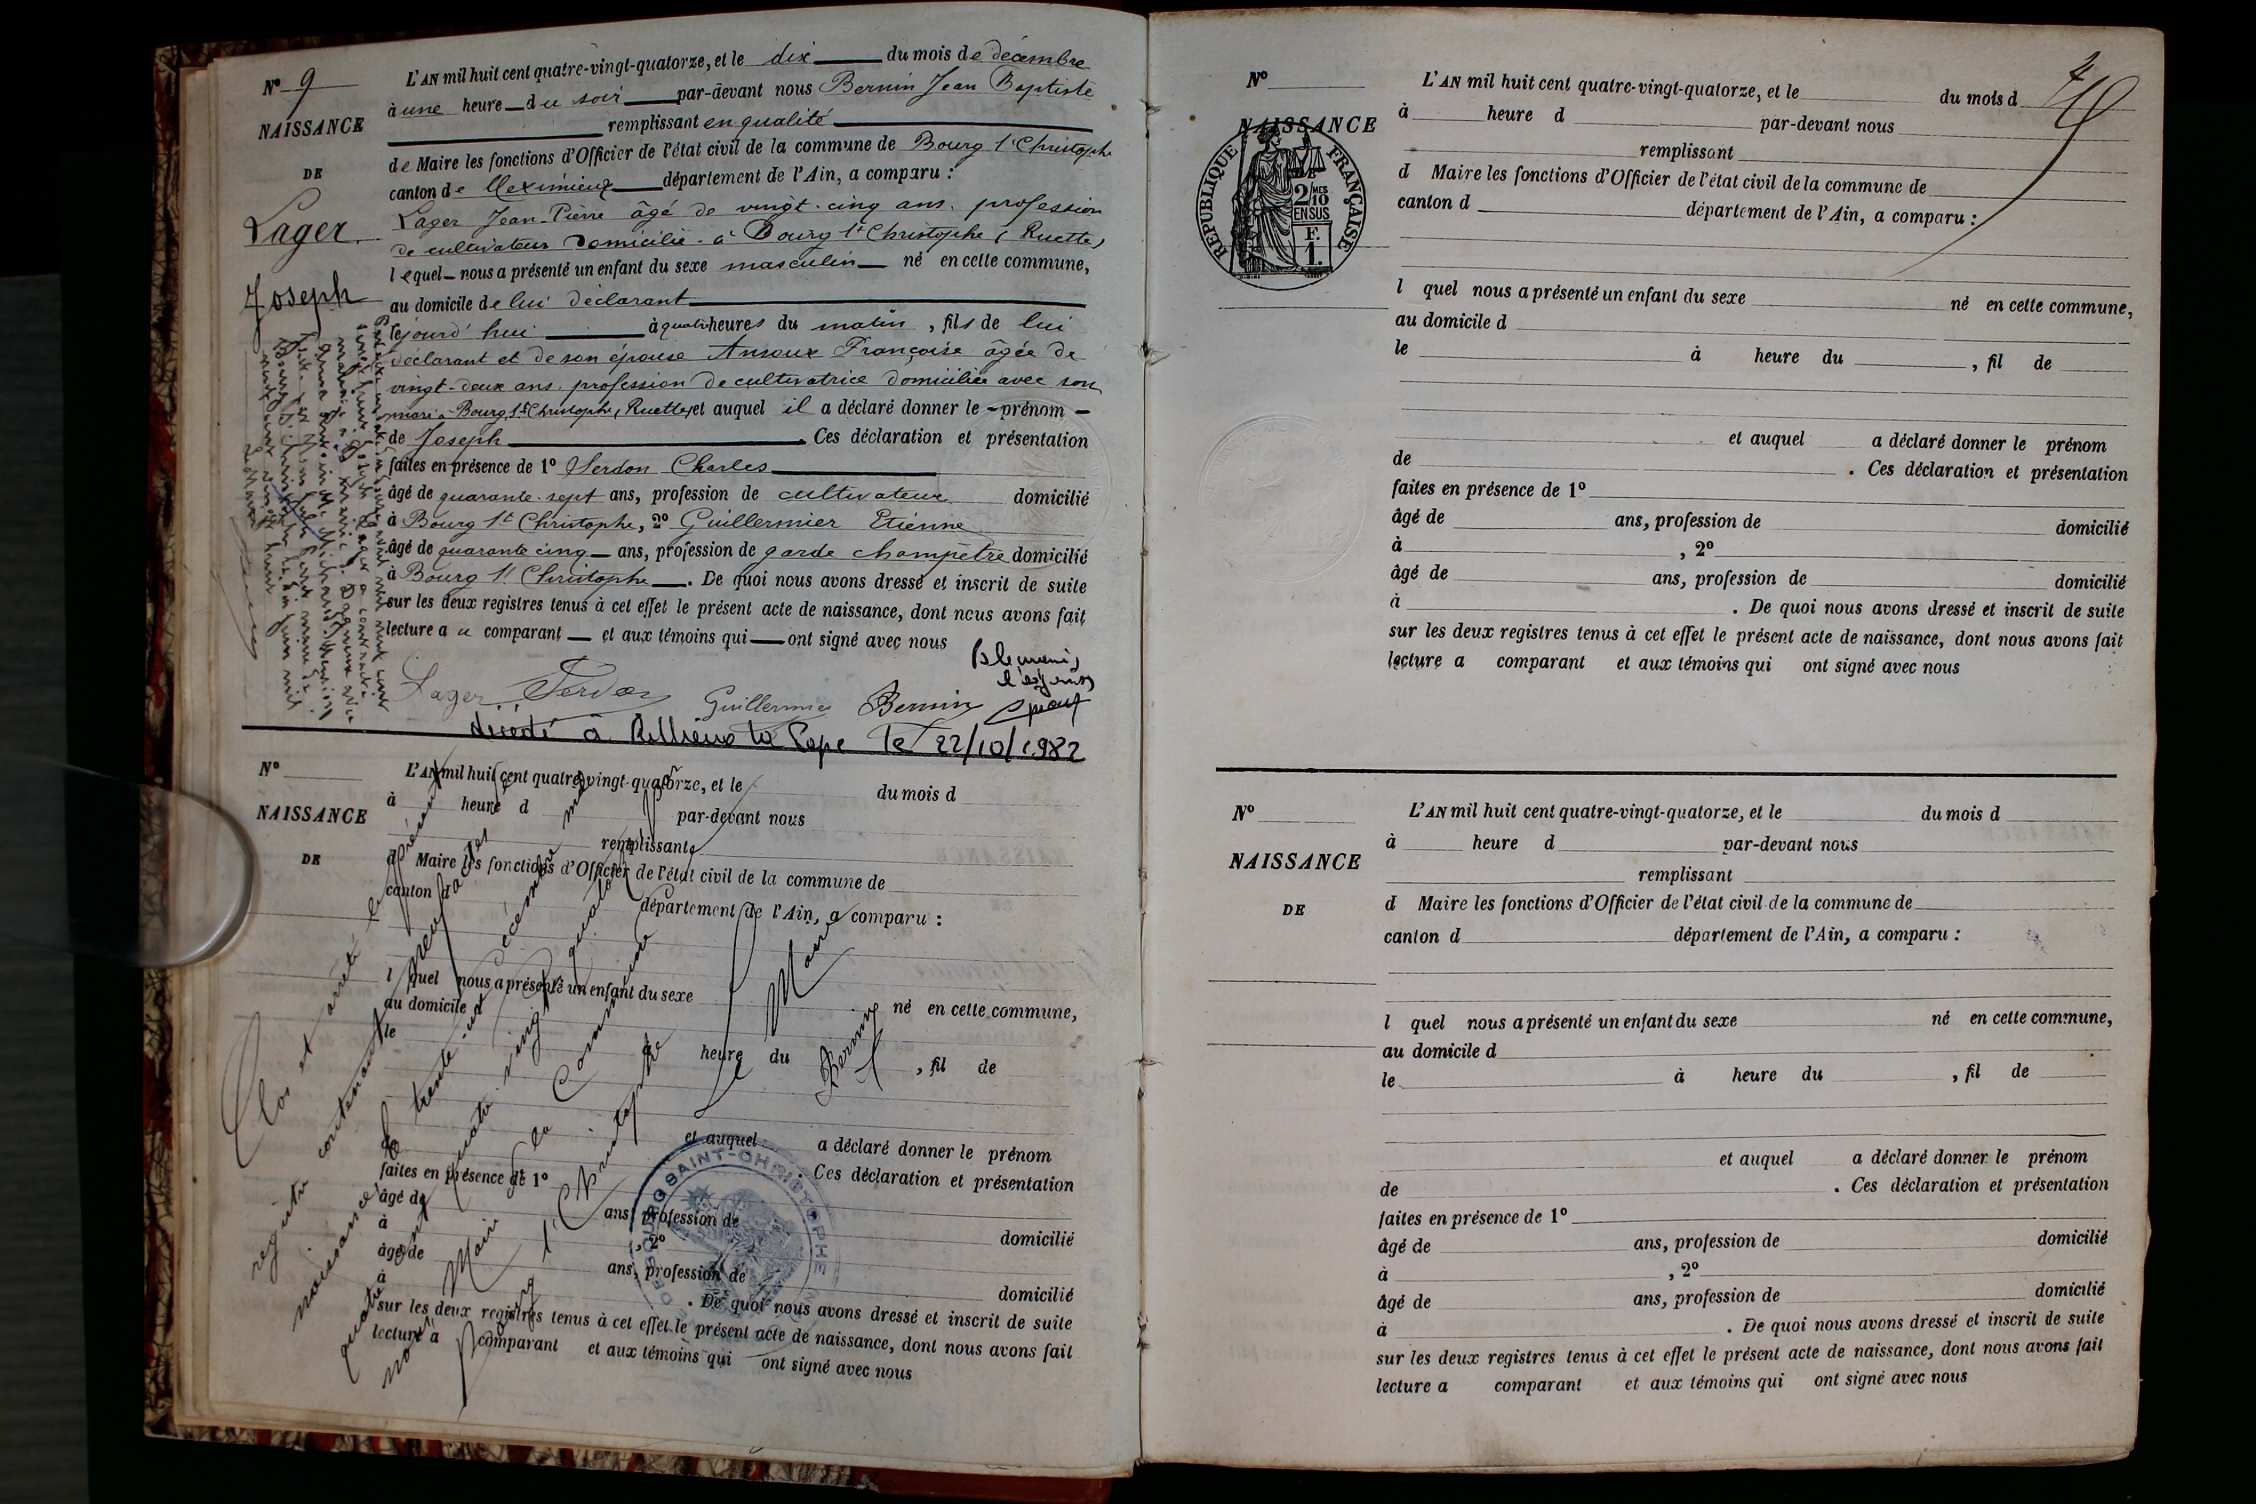 Nº 9
NAISSANCE
DE
Lager
Joseph
L'AN mil huit cent quatre-vingt-quatorze, et le dix du mois de décembre
à une heure du soir par-devant nous Bernin Jean Baptiste
remplissant en qualité
de Maire les fonctions d'Officier de l'état civil de la commune de Bourg St Christophe
canton de Meximieux département de l'Ain, a comparu :
Lager Jean-Pierre âgé de vingt-cinq ans, profession
de cultivateur domicilié à Bourg St Christophe (Ruette)
lequel nous a présenté un enfant du sexe masculin né en cette commune,
au domicile de lui déclarant
cejourd'hui à quatre heures du matin, fils de lui
déclarant et de son épouse Ansoux Françoise âgée de
vingt-deux ans, profession de cultivatrice domiciliée avec son
mari à Bourg St Christophe (Ruette) et auquel il a déclaré donner le prénom
de Joseph. Ces déclaration et présentation
faites en présence de 1º Serdon Charles
âgé de quarante-sept ans, profession de cultivateur domicilié
à Bourg St Christophe, 2º Guillermier Etienne
âgé de quarante cinq ans, profession de garde champêtre domicilié
à Bourg St Christophe. De quoi nous avons dressé et inscrit de suite
sur les deux registres tenus à cet effet le présent acte de naissance, dont nous avons fait
lecture au comparant et aux témoins qui ont signé avec nous
Lager Serdon Guillermier Bernin
décédé à Rillieux la Pape le 22/10/1982
Nº
NAISSANCE
DE
L'AN mil huit cent quatre-vingt-quatorze, et le du mois d
à heure d par-devant nous
remplissant
d Maire les fonctions d'Officier de l'état civil de la commune de
canton d département de l'Ain, a comparu :
l quel nous a présenté un enfant du sexe né en cette commune,
au domicile d
le à heure du , fil de
et auquel a déclaré donner le prénom
de . Ces déclaration et présentation
faites en présence de 1º
âgé de ans, profession de domicilié
à , 2º
âgé de ans, profession de domicilié
à . De quoi nous avons dressé et inscrit de suite
sur les deux registres tenus à cet effet le présent acte de naissance, dont nous avons fait
lecture a comparant et aux témoins qui ont signé avec nous
Clos et arrêté le présent
registre contenant neuf actes de
naissance, le trente-un décembre mil
huit cent quatre vingt quatorze par
nous Maire de la Commune
de Bourg St Christophe
Le Maire
Bernin
BOURG SAINT-CHRISTOPHE
Nº
NAISSANCE
RÉPUBLIQUE FRANÇAISE
2/10
EN SUS
F.
1.
L'AN mil huit cent quatre-vingt-quatorze, et le du mois d
à heure d par-devant nous
remplissant
d Maire les fonctions d'Officier de l'état civil de la commune de
canton d département de l'Ain, a comparu :
l quel nous a présenté un enfant du sexe né en cette commune,
au domicile d
le à heure du , fil de
et auquel a déclaré donner le prénom
de . Ces déclaration et présentation
faites en présence de 1º
âgé de ans, profession de domicilié
à , 2º
âgé de ans, profession de domicilié
à . De quoi nous avons dressé et inscrit de suite
sur les deux registres tenus à cet effet le présent acte de naissance, dont nous avons fait
lecture a comparant et aux témoins qui ont signé avec nous
Nº
NAISSANCE
DE
L'AN mil huit cent quatre-vingt-quatorze, et le du mois d
à heure d par-devant nous
remplissant
d Maire les fonctions d'Officier de l'état civil de la commune de
canton d département de l'Ain, a comparu :
l quel nous a présenté un enfant du sexe né en cette commune,
au domicile d
le à heure du , fil de
et auquel a déclaré donner le prénom
de . Ces déclaration et présentation
faites en présence de 1º
âgé de ans, profession de domicilié
à , 2º
âgé de ans, profession de domicilié
à . De quoi nous avons dressé et inscrit de suite
sur les deux registres tenus à cet effet le présent acte de naissance, dont nous avons fait
lecture a comparant et aux témoins qui ont signé avec nous